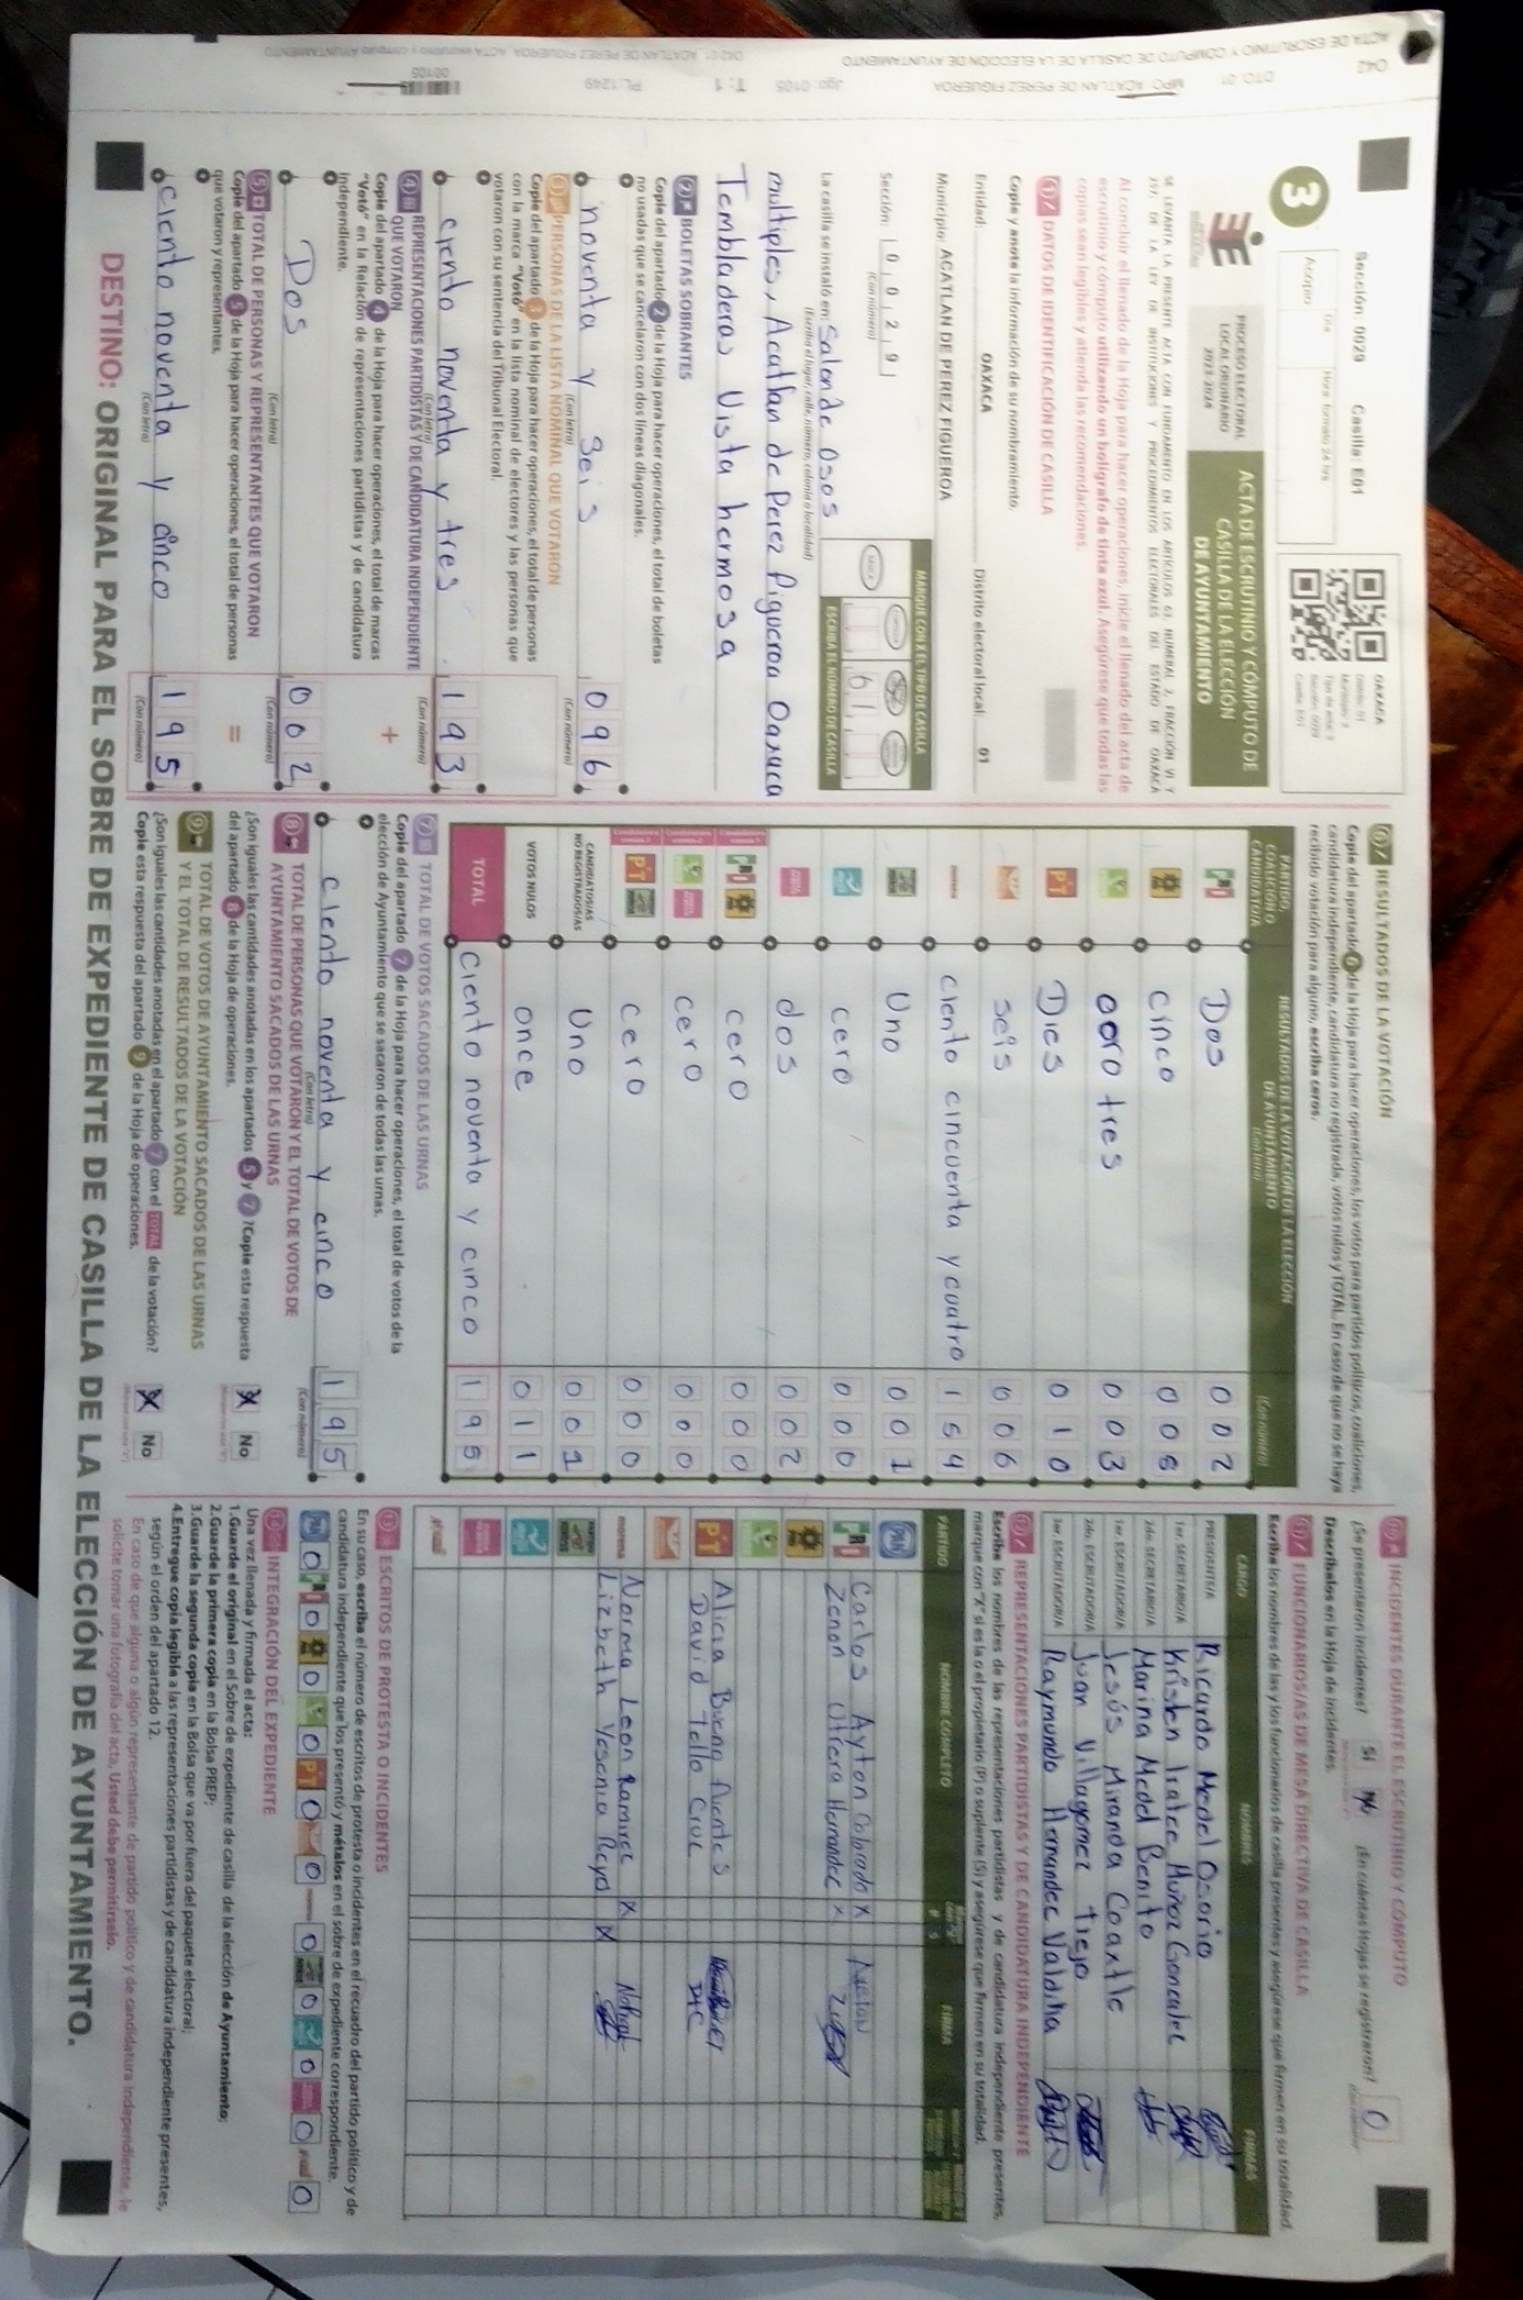 042 DTO. 01 MPO: ACATLAN DE PEREZ FIGUEROA Jgo: 0105 T: 1 PL:1249
00105
ACTA DE ESCRUTINIO Y CÓMPUTO DE CASILLA DE LA ELECCIÓN DE AYUNTAMIENTO
Sección: 0029 Casilla: E01
3
Acopio
Hora: formato 24 hrs
OAXACA
PROCESO ELECTORAL
LOCAL ORDINARIO
2023-2024
ACTA DE ESCRUTINIO Y CÓMPUTO DE
CASILLA DE LA ELECCIÓN
DE AYUNTAMIENTO
SE LEVANTA LA PRESENTE ACTA CON FUNDAMENTO EN LOS ARTÍCULOS 63, NUMERAL 2, FRACCIÓN VI Y
257, DE LA LEY DE INSTITUCIONES Y PROCEDIMIENTOS ELECTORALES DEL ESTADO DE OAXACA
Al concluir el llenado de la Hoja para hacer operaciones, inicie el llenado del acta de
escrutinio y cómputo utilizando un bolígrafo de tinta azul. Asegúrese que todas las
copias sean legibles y atienda las recomendaciones.
1 DATOS DE IDENTIFICACIÓN DE CASILLA
Copie y anote la información de su nombramiento.
Entidad: OAXACA Distrito electoral local: 01
Municipio: ACATLAN DE PEREZ FIGUEROA
Sección: 0 0 2 9
(Con número)
MARQUE CON X EL TIPO DE CASILLA
ESCRIBA EL NÚMERO DE CASILLA
La casilla se instaló en: Salon de Osos
(Escriba el lugar, calle, número, colonia o localidad)
multiples, Acatlan de Perez Figueroa Oaxaca
Tembladeras Vista hermosa
2 BOLETAS SOBRANTES
Copie del apartado 2 de la Hoja para hacer operaciones, el total de boletas
no usadas que se cancelaron con dos líneas diagonales.
noventa y seis 0 9 6
(Con letra) (Con número)
3 PERSONAS DE LA LISTA NOMINAL QUE VOTARON
Copie del apartado 3 de la Hoja para hacer operaciones, el total de personas
con la marca "Votó" en la lista nominal de electores y las personas que
votaron con su sentencia del Tribunal Electoral.
ciento noventa y tres 1 9 3
(Con letra) (Con número)
4 REPRESENTACIONES PARTIDISTAS Y DE CANDIDATURA INDEPENDIENTE
QUE VOTARON
Copie del apartado 4 de la Hoja para hacer operaciones, el total de marcas
"Votó" en la Relación de representaciones partidistas y de candidatura
independiente.
+
Dos 0 0 2
(Con letra) (Con número)
5 TOTAL DE PERSONAS Y REPRESENTANTES QUE VOTARON
Copie del apartado 5 de la Hoja para hacer operaciones, el total de personas
que votaron y representantes.
=
ciento noventa y cinco 1 9 5
(Con letra) (Con número)
6 RESULTADOS DE LA VOTACIÓN
Copie del apartado 6 de la Hoja para hacer operaciones, los votos para partidos políticos, coaliciones,
candidatura independiente, candidatura no registrada, votos nulos y TOTAL. En caso de que no se haya
recibido votación para alguno, escriba ceros.
PARTIDO, COALICIÓN O CANDIDATO/A
RESULTADOS DE LA VOTACIÓN DE LA ELECCIÓN DE AYUNTAMIENTO
(Con letra) (Con número)
PRI Dos 0 0 2
cinco 0 0 5
tres 0 0 3
PT Dies 0 1 0
seis 0 0 6
morena ciento cincuenta y cuatro 1 5 4
Uno 0 0 1
cero 0 0 0
dos 0 0 2
PRI cero 0 0 0
cero 0 0 0
PT cero 0 0 0
CANDIDATOS/AS NO REGISTRADOS/AS Uno 0 0 1
VOTOS NULOS once 0 1 1
TOTAL ciento noventa y cinco 1 9 5
7 TOTAL DE VOTOS SACADOS DE LAS URNAS
Copie del apartado 7 de la Hoja para hacer operaciones, el total de votos de la
elección de Ayuntamiento que se sacaron de todas las urnas.
ciento noventa y cinco 1 9 5
(Con letra) (Con número)
8 TOTAL DE PERSONAS QUE VOTARON Y EL TOTAL DE VOTOS DE
AYUNTAMIENTO SACADOS DE LAS URNAS
¿Son iguales las cantidades anotadas en los apartados 5 y 7? Copie esta respuesta
del apartado 8 de la Hoja de operaciones.
X No
9 TOTAL DE VOTOS DE AYUNTAMIENTO SACADOS DE LAS URNAS
Y EL TOTAL DE RESULTADOS DE LA VOTACIÓN
¿Son iguales las cantidades anotadas en el apartado 7 con el TOTAL de la votación?
Copie esta respuesta del apartado 9 de la Hoja de operaciones.
X No
10 INCIDENTES DURANTE EL ESCRUTINIO Y CÓMPUTO
¿Se presentaron incidentes? Sí ¿En cuántas Hojas se registraron? 0
Descríbalos en la Hoja de incidentes.
11 FUNCIONARIOS/AS DE MESA DIRECTIVA DE CASILLA
Escriba los nombres de las y los funcionarios de casilla presentes y asegúrese que firmen en su totalidad.
CARGO NOMBRES FIRMAS
PRESIDENTE/A Ricardo Medel Osorio
1er. SECRETARIO/A Kristen Iralee Muñoz Goncalec
2do. SECRETARIO/A Marina Medel Benito
1er. ESCRUTADOR/A Jesús Miranda Coaxtle
2do. ESCRUTADOR/A Juan Villagomez Tiejo
3er. ESCRUTADOR/A Raymundo Hernandec Valdilla
REPRESENTACIONES PARTIDISTAS Y DE CANDIDATURA INDEPENDIENTE
Escriba los nombres de las representaciones partidistas y de candidatura independiente presentes,
marque con "X" si es la o el propietario (P) o suplente (S) y asegúrese que firmen en su totalidad.
PARTIDO NOMBRE COMPLETO P S FIRMA
PAN
PRI Carlos Ayton Colorado X
Zenon Utrera Hernandec X
PT Alicia Bueno Fuentes
David Tello Cruc DTC
morena Norma Leon Ramirec X
Lizbeth Yesenia Reyes X
ESCRITOS DE PROTESTA O INCIDENTES
En su caso, escriba el número de escritos de protesta o incidentes en el recuadro del partido político y de
candidatura independiente que los presentó y métalos en el sobre de expediente correspondiente.
PAN 0 PRI 0 0 0 PT 0 0 0 0 0 0 0
INTEGRACIÓN DEL EXPEDIENTE
Una vez llenada y firmada el acta:
1.Guarde el original en el Sobre de expediente de casilla de la elección de Ayuntamiento;
2.Guarde la primera copia en la Bolsa PREP;
3.Guarde la segunda copia en la Bolsa que va por fuera del paquete electoral;
4.Entregue copia legible a las representaciones partidistas y de candidatura independiente presentes,
según el orden del apartado 12.
En caso de que alguna o algún representante de partido político y de candidatura independiente, le
solicite tomar una fotografía del acta, Usted debe permitírselo.
DESTINO: ORIGINAL PARA EL SOBRE DE EXPEDIENTE DE CASILLA DE LA ELECCIÓN DE AYUNTAMIENTO.